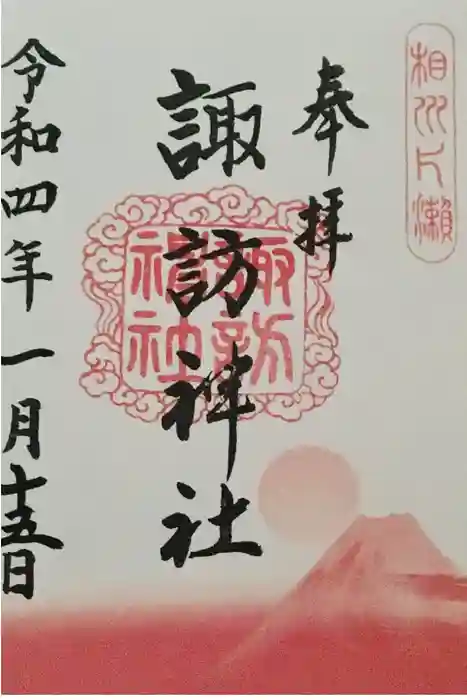 相州片瀬
奉拝
諏訪神社
諏訪神社
令和四年一月十五日